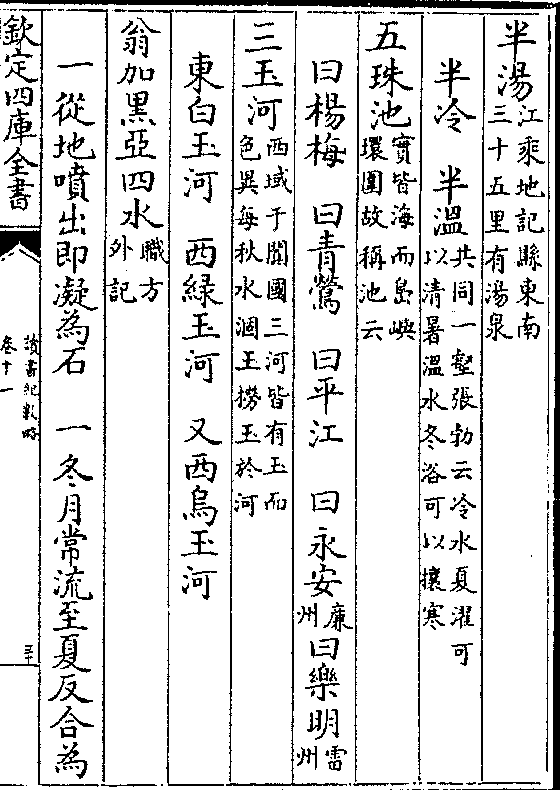 半湯江乘地記縣東南三十五里有湯泉
半冷　半溫共同一壑張勃云冷水夏濯可以清暑溫水冬浴可以攘寒
五珠池實皆海而島嶼環圍故稱池云
曰楊梅　曰青鶯　曰平江　曰永安廉州曰樂明雷州
三玉河西域于闐國三河皆有玉而色異每秋水涸王撈玉於河
東白玉河　西緑玉河　又西烏玉河
翁加黑亞四水職方外記
一從地噴出即凝為石　一冬月常流至夏反合為
欽定四庫全書
讀書紀數略
卷十一
三十